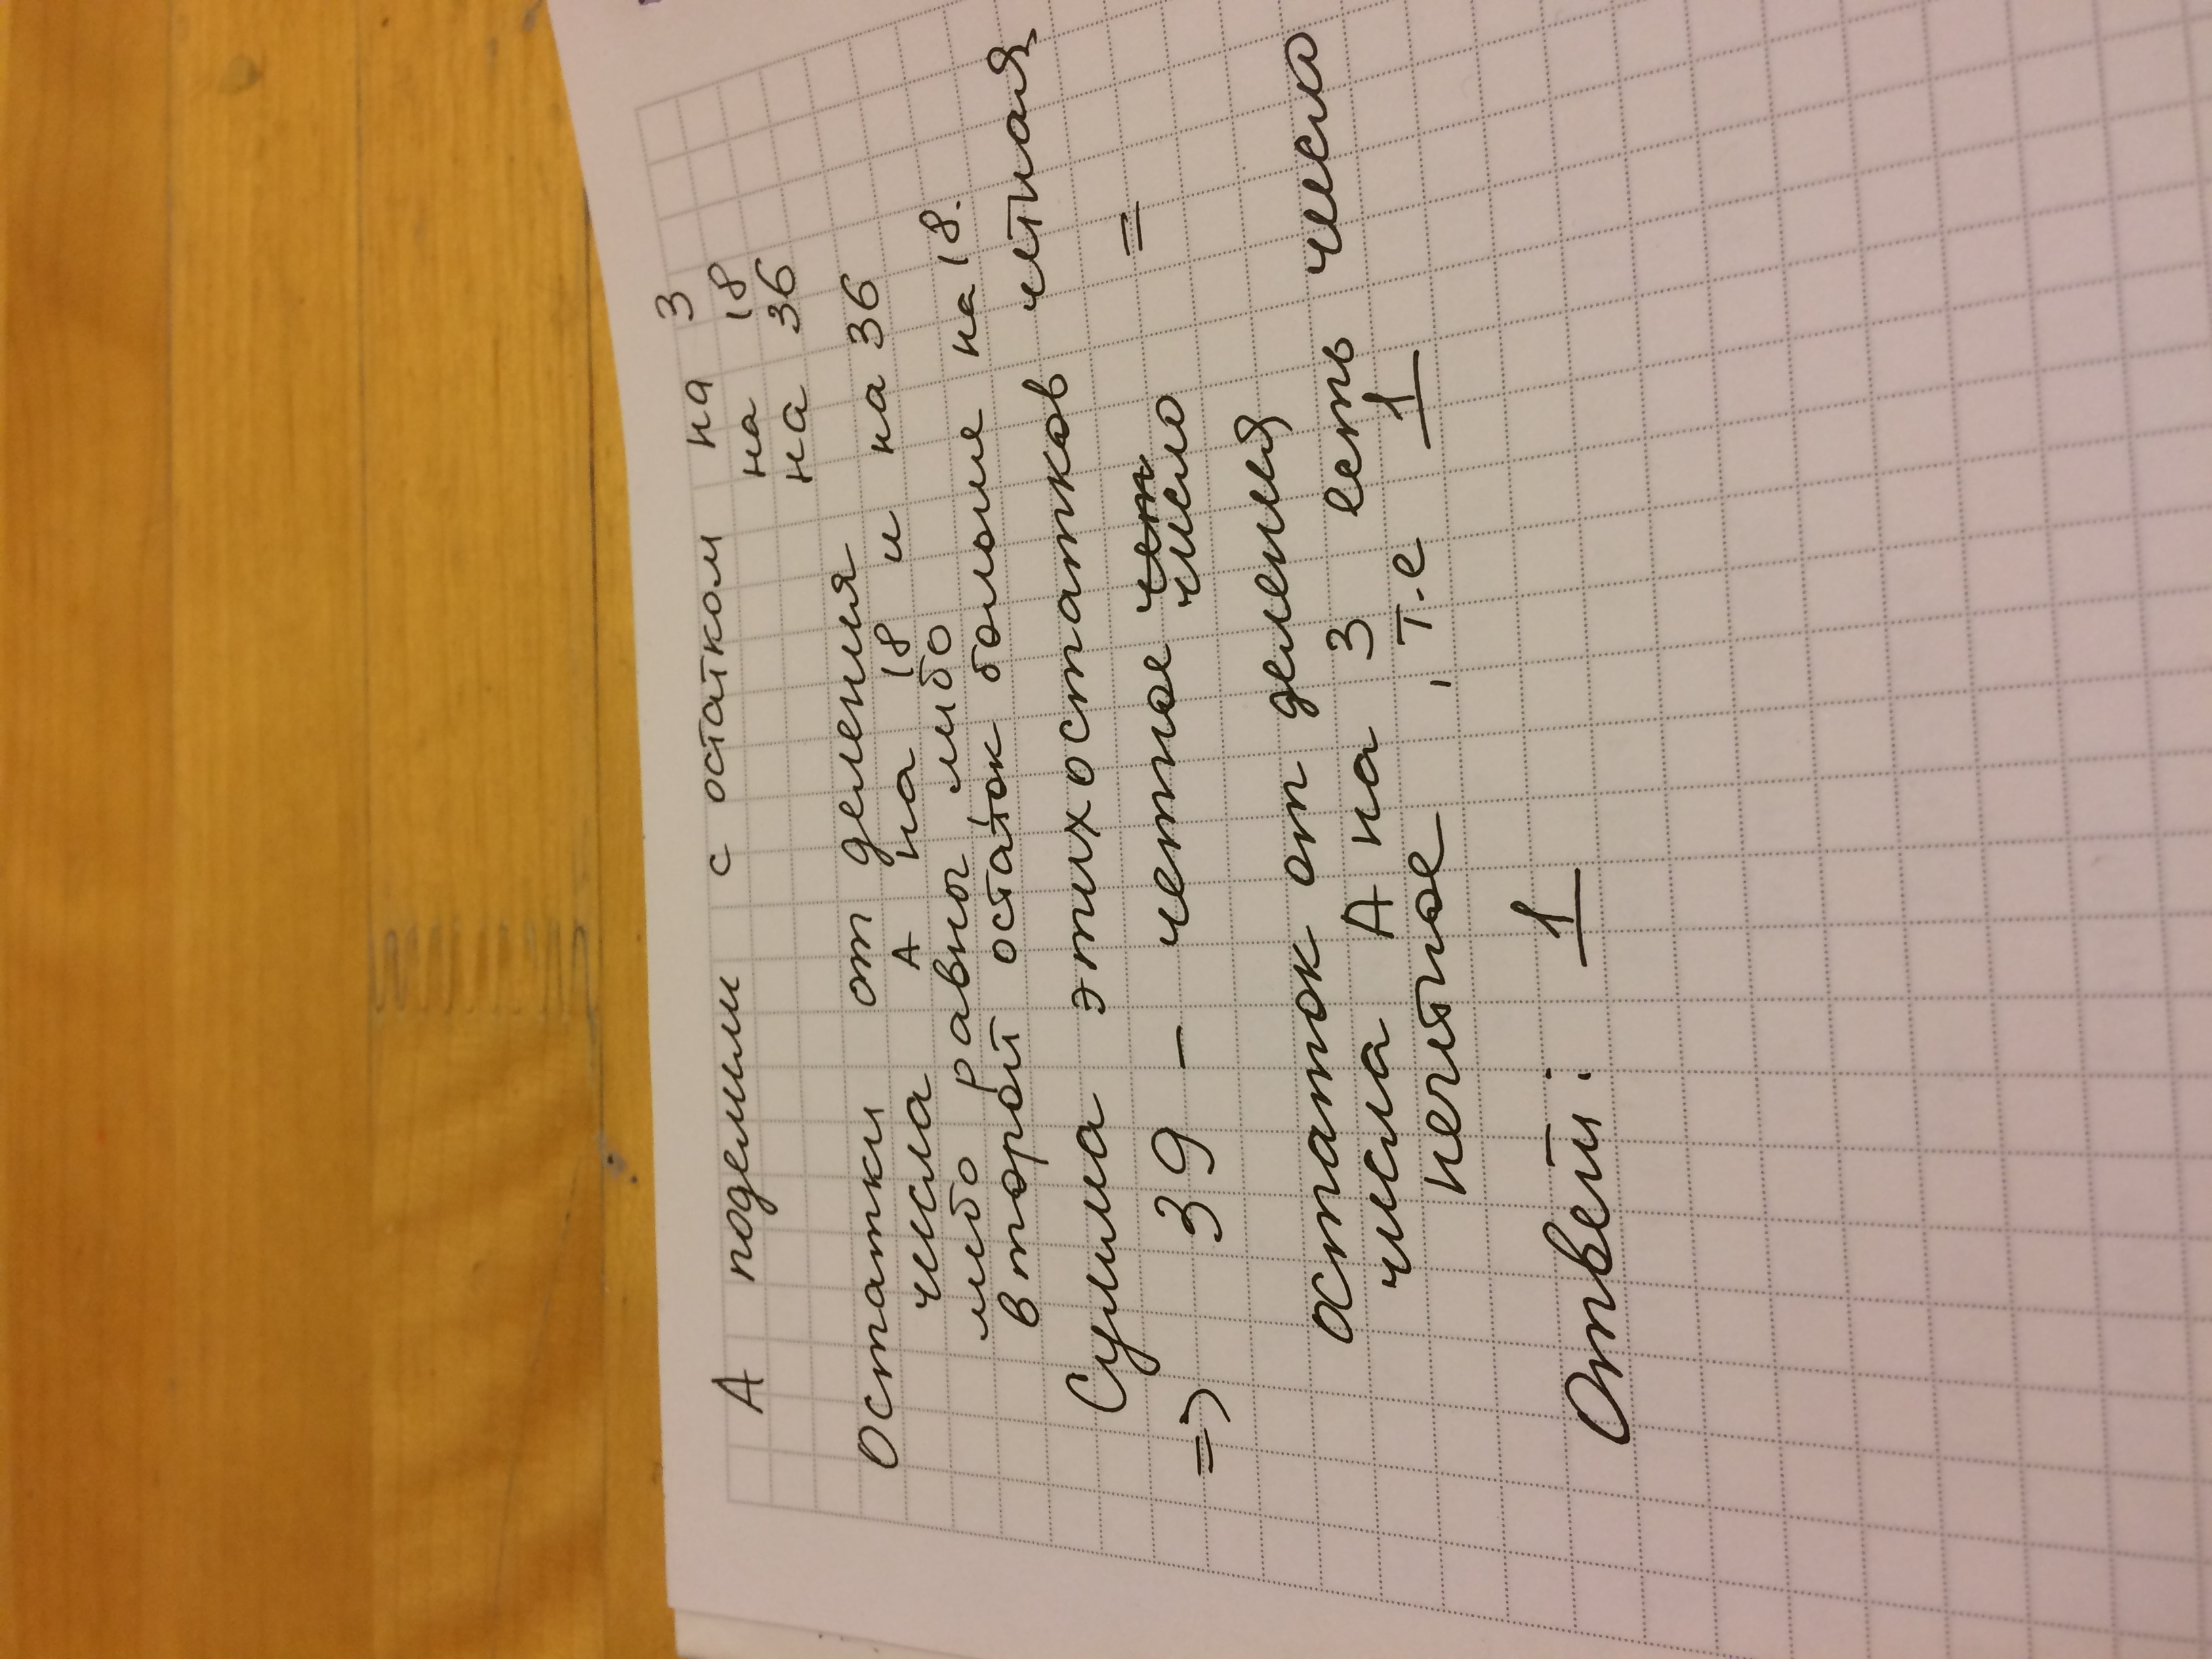 А поделили с остатком на 3
на 18
на 36
Остатки от деления
числа А на 18 и на 36
либо равны либо
второй остаток больше на 18.
Сумма этих остатков чётная =
=> 39 - четное чет
число
остаток от деления
числа А на 3 есть число
нечётное, т.е 1
Ответ: 1